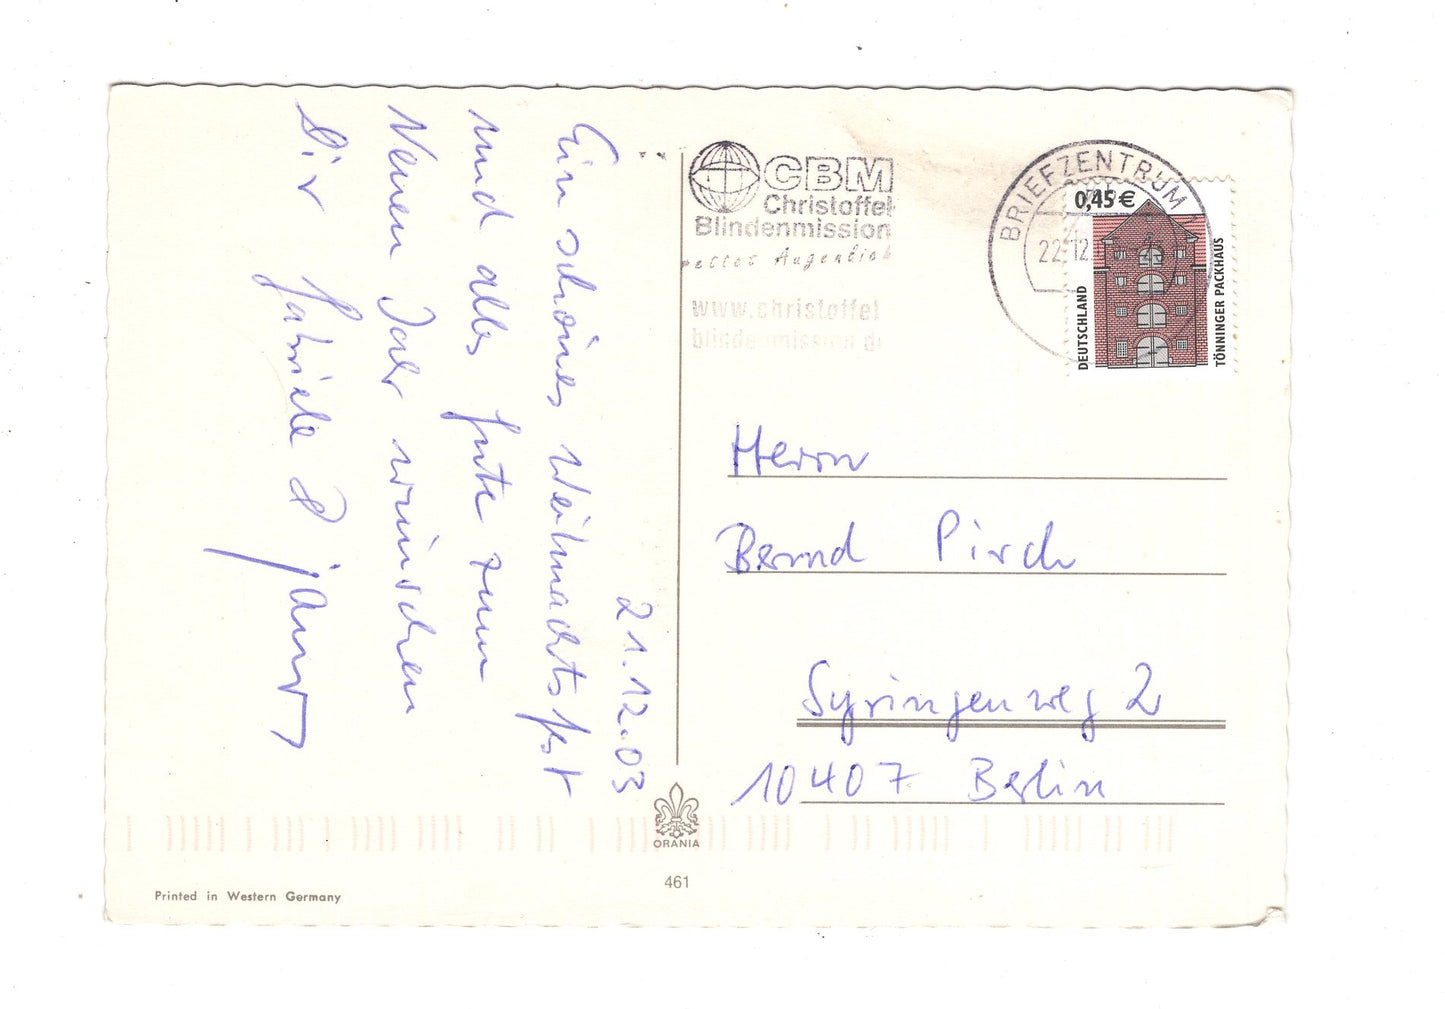 21.12.03
Ein schönes Weihnachtsfest
und alles gute zum
Neuen Jahr wünschen
Dir Gabriele &
CBM
Christoffel
Blindenmission
rettet Augenlich
www.christoffel
blindenmission.de
BRIEFZENTRUM
22.12
0,45 €
DEUTSCHLAND
TÖNNINGER PACKHAUS
Herrn
Bernd Pirch
Syringenweg 2
10407 Berlin
ORANIA
461
Printed in Western Germany